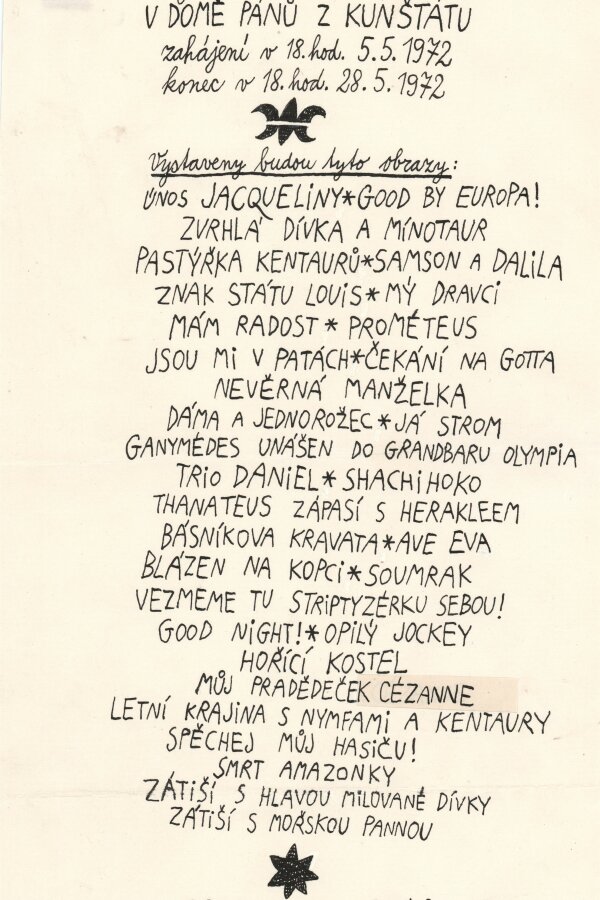 V DOMĚ PÁNŮ Z KUNŠTÁTU
zahájení v 18. hod. 5.5.1972
konec v 18. hod. 28.5.1972
Vystaveny budou tyto obrazy:
ÚNOS JACQUELINY*GOOD BY EUROPA!
ZVRHLÁ DÍVKA A MÍNOTAUR
PASTÝŘKA KENTAURŮ*SAMSON A DALILA
ZNAK STÁTU LOUIS*MÝ DRAVCI
MÁM RADOST*PROMÉTEUS
JSOU MI V PATÁCH*ČEKÁNÍ NA GOTTA
NEVĚRNÁ MANŽELKA
DÁMA A JEDNOROŽEC*JÁ STROM
GANYMÉDES UNÁŠEN DO GRANDBARU OLYMPIA
TRIO DANIEL*SHACHIHOKO
THANATEUS ZÁPASÍ S HERAKLEEM
BÁSNÍKOVA KRAVATA*AVE EVA
BLÁZEN NA KOPCI*SOUMRAK
VEZMEME TU STRIPTYZÉRKU SEBOU!
GOOD NIGHT!*OPILÝ JOCKEY
HOŘÍCÍ KOSTEL
MŮJ PRADĚDEČEK CÉZANNE
LETNÍ KRAJINA S NYMFAMI A KENTAURY
SPĚCHEJ MŮJ HASIČU!
SMRT AMAZONKY
ZÁTIŠÍ S HLAVOU MILOVANÉ DÍVKY
ZÁTIŠÍ S MOŘSKOU PANNOU